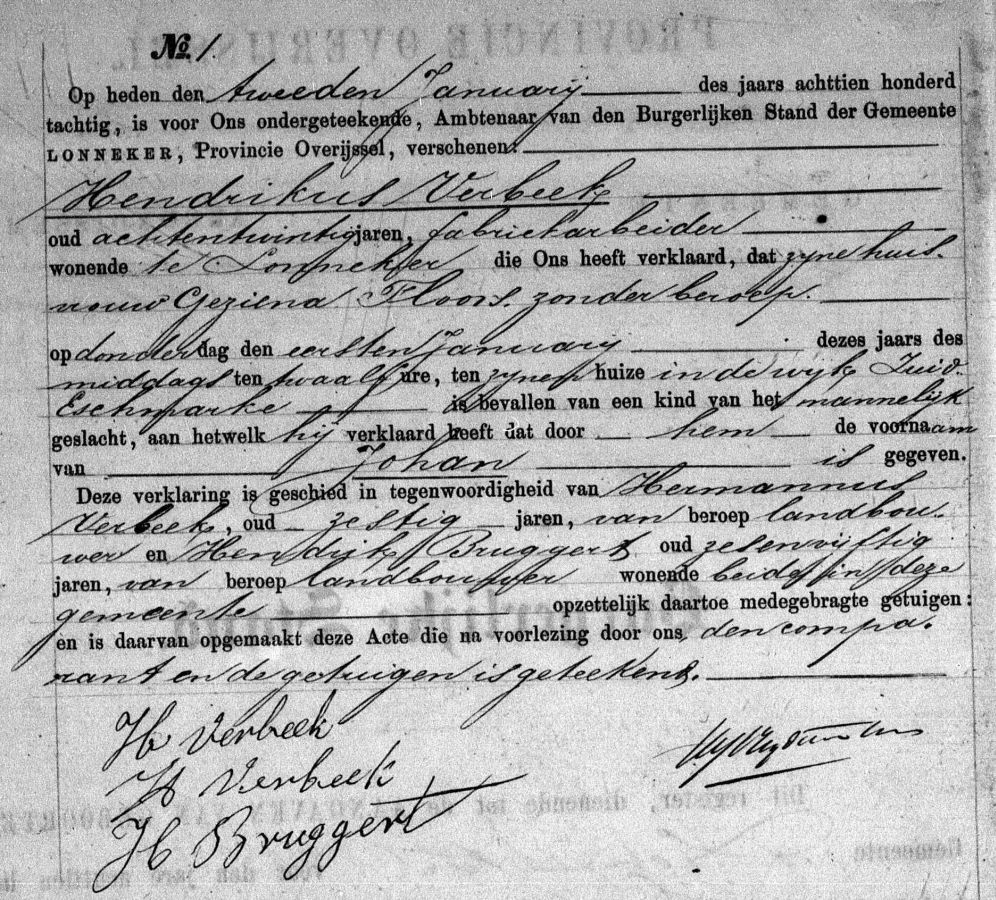 No. 1.
Op heden den tweeden January des jaars achttien honderd
tachtig, is voor Ons ondergeteekende, Ambtenaar van den Burgerlijken Stand der Gemeente
LONNEKER, Provincie Overijssel, verschenen:
Hendrikus Verbeek
oud achtentwintig jaren, fabriekarbeider
wonende te Lonneker die Ons heeft verklaard, dat zyne huis-
vrouw Geziena Floors. zonder beroep.
op donderdag den eersten January dezes jaars des
middags ten twaalf ure, ten zynen huize in de wijk Zuid-
Eschmarke is bevallen van een kind van het mannelijk
geslacht, aan hetwelk hij verklaard heeft dat door hem de voornaam
van Johan is gegeven.
Deze verklaring is geschied in tegenwoordigheid van Hermannus
Verbeek, oud zestig jaren, van beroep landbou-
wer en Hendrijk Bruggert oud zesenvijftig
jaren, van beroep landbouwer wonende beide in deze
gemeente opzettelijk daartoe medegebragte getuigen:
en is daarvan opgemaakt deze Acte die na voorlezing door ons, den compa-
rant en de getuigen is geteekend.
H Verbeek
H Verbeek
H Bruggert